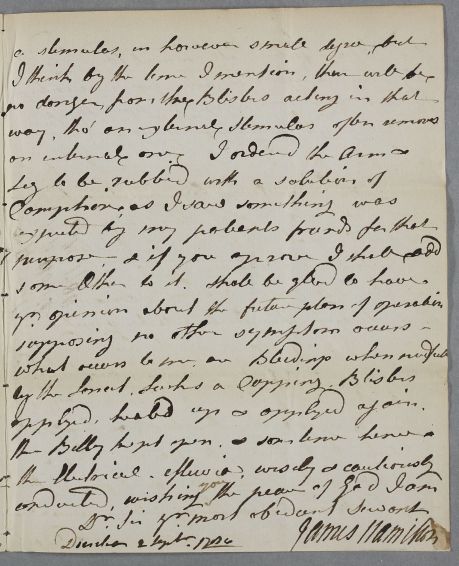 a stemulas, in however small degre, but
I think by the time I mention, ther will be
no danger from the Blisters acting in that
way, tho' an external stemulas often removes
an internal one, I ordered the Arm &
Leg to be rubbed with a solution of
Camphire, as I saw something was
expected by my patients friends for that
purpose - & if you aprove I shall add
some Ether to it. shall be glad to have
yr. opinion about the future plan of operation
supposing no other symptom occurs -
what occurs to me, are Bleedings when needfull
by the Lancet. Leeches or Cupping, Blisters
applyed, healed up & applyed again.
the Belly kept open. & some time hence
the Electrical effluvia, wisely & cautiously
conducted, wishing you the peace of God I am
Dr. Sir yr. most obedient servant
James Hamilton
Dunbar 2 Sept.